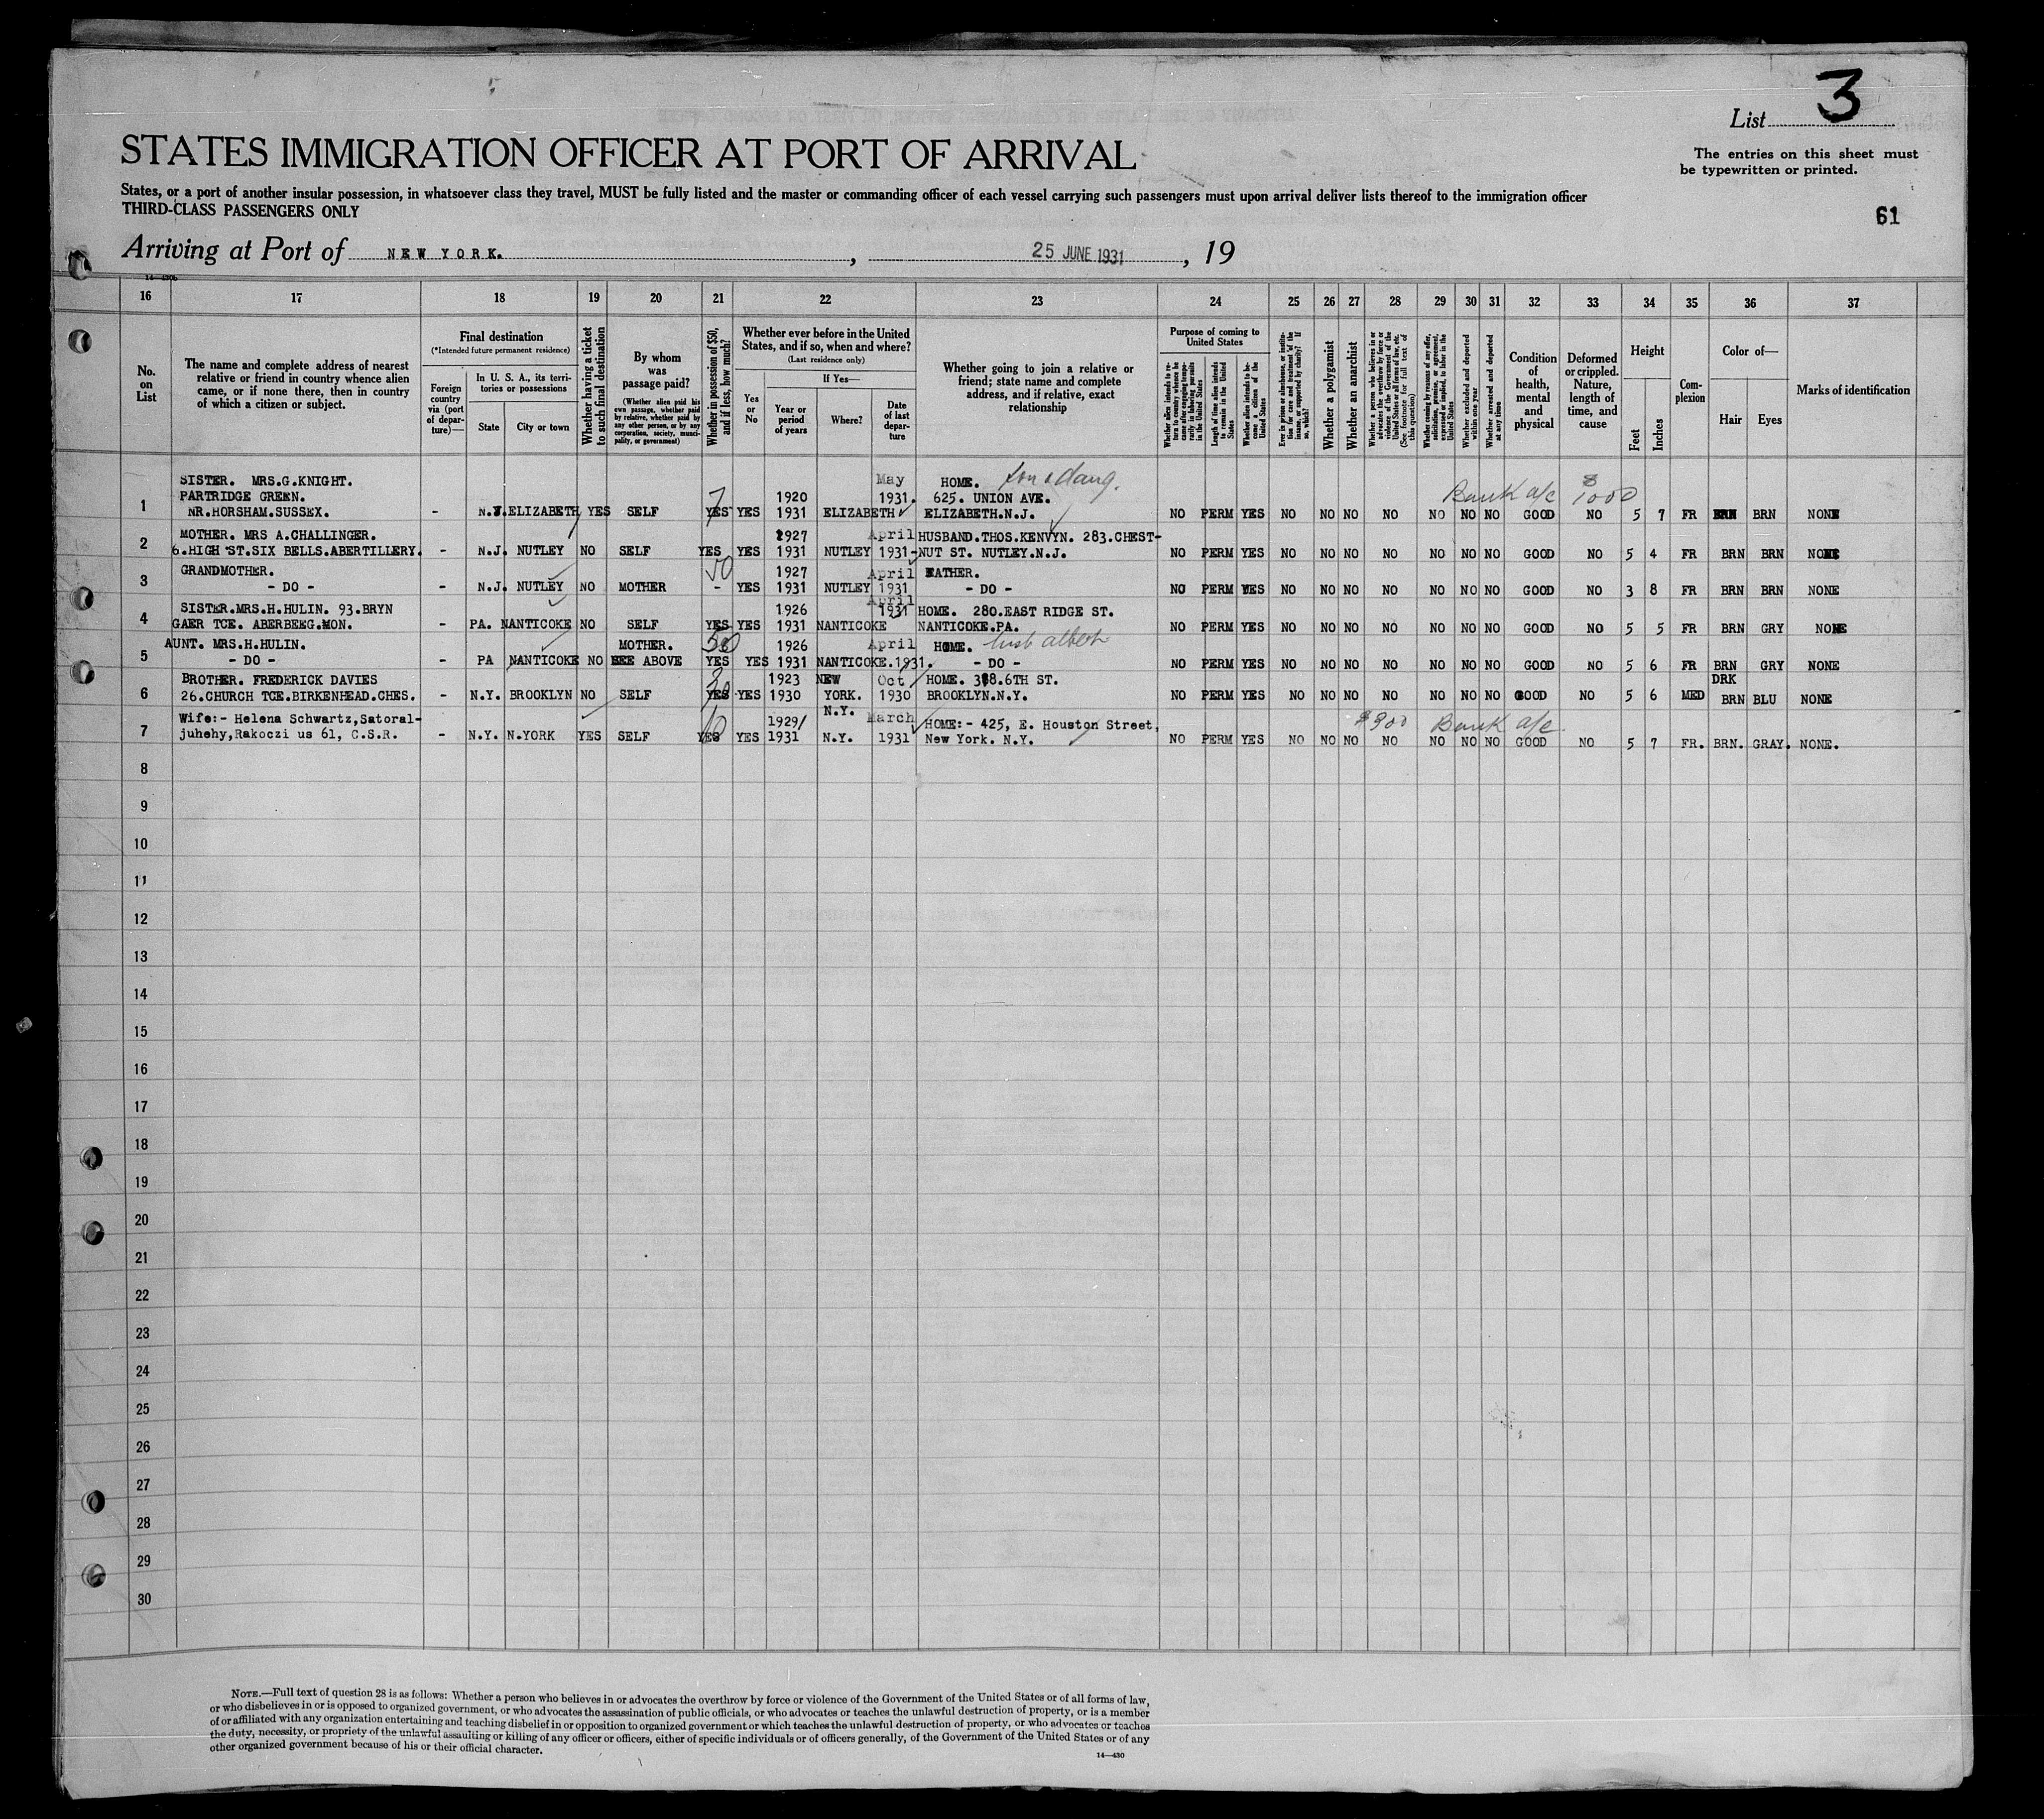 List 3
STATES IMMIGRATION OFFICER AT PORT OF ARRIVAL
The entries on this sheet must
be typewritten or printed.
States, or a port of another insular possession, in whatsoever class they travel, MUST be fully listed and the master or commanding officer of each vessel carrying such passengers must upon arrival deliver lists thereof to the immigration officer
THIRD-CLASS PASSENGERS ONLY
61
Arriving at Port of NEW YORK. , 25 JUNE 1931 , 19
14—430b
16 17 18 19 20 21 22 23 24 25 26 27 28 29 30 31 32 33 34 35 36 37
No.
on
List
The name and complete address of nearest
relative or friend in country whence alien
came, or if none there, then in country
of which a citizen or subject.
Final destination
(*Intended future permanent residence)
Foreign
country
via (port
of depar-
ture)—
In U. S. A., its terri-
tories or possessions
State
City or town
Whether having a ticket
to such final destination
By whom
was
passage paid?
(Whether alien paid his
own passage, whether paid
by relative, whether paid by
any other person, or by any
corporation, society, munici-
pality, or government)
Whether in possession of $50,
and if less, how much?
Whether ever before in the United
States, and if so, when and where?
(Last residence only)
Yes
or
No
If Yes—
Year or
period
of years
Where?
Date
of last
depar-
ture
Whether going to join a relative or
friend; state name and complete
address, and if relative, exact
relationship
Purpose of coming to
United States
Whether alien intends to re-
turn to country whence he
came after engaging tempo-
rarily in laboring pursuits
in the United States
Length of time alien intends
to remain in the United
States
Whether alien intends to be-
come a citizen of the
United States
Ever in prison or almshouse, or institu-
tion for care and treatment of the
insane, or supported by charity? If
so, which?
Whether a polygamist
Whether an anarchist
Whether a person who believes in or
advocates the overthrow by force or
violence of the Government of the
United States or all forms of law, etc.
(See footnote for full text of
this question)
Whether coming by reason of any offer,
solicitation, promise, or agreement,
expressed or implied, to labor in the
United States
Whether excluded and deported
within one year
Whether arrested and deported
at any time
Condition
of
health,
mental
and
physical
Deformed
or crippled.
Nature,
length of
time, and
cause
Height
Feet
Inches
Com-
plexion
Color of—
Hair
Eyes
Marks of identification
SISTER. MRS.G.KNIGHT. May HOME.
PARTRIDGE GREEN. 1920 1931. 625. UNION AVE. Bank a/c $1000
1 NR.HORSHAM.SUSSEX. - N.J. ELIZABETH YES SELF YES YES 1931 ELIZABETH ELIZABETH.N.J. NO PERM YES NO NO NO NO NO NO NO GOOD NO 5 7 FR BRN BRN NONE
MOTHER. MRS A.CHALLINGER. 1927 April HUSBAND.THOS.KENVYN. 283.CHEST-
2 6.HIGH ST.SIX BELLS.ABERTILLERY. - N.J. NUTLEY NO SELF YES YES 1931 NUTLEY 1931 NUT ST. NUTLEY.N.J. NO PERM YES NO NO NO NO NO NO NO GOOD NO 5 4 FR BRN BRN NONE
GRANDMOTHER. 50 1927 April FATHER.
3 - DO - - N.J. NUTLEY NO MOTHER - YES 1931 NUTLEY 1931 - DO - NO PERM YES NO NO NO NO NO NO NO GOOD NO 3 8 FR BRN BRN NONE
SISTER.MRS.H.HULIN. 93.BRYN 1926 April 1931 HOME. 280.EAST RIDGE ST.
4 GAER TCE. ABERBEEG.MON. - PA. NANTICOKE NO SELF YES YES 1931 NANTICOKE NANTICOKE.PA. NO PERM YES NO NO NO NO NO NO NO GOOD NO 5 5 FR BRN GRY NONE
AUNT. MRS.H.HULIN. MOTHER. 1926 April HOME.
5 - DO - - PA NANTICOKE NO SEE ABOVE YES YES 1931 NANTICOKE.1931. - DO - NO PERM YES NO NO NO NO NO NO NO GOOD NO 5 6 FR BRN GRY NONE
BROTHER. FREDERICK DAVIES 1923 NEW Oct HOME. 318.6TH ST. DRK
6 26.CHURCH TCE.BIRKENHEAD.CHES. - N.Y. BROOKLYN NO SELF YES YES 1930 YORK. 1930 BROOKLYN.N.Y. NO PERM YES NO NO NO NO NO NO NO GOOD NO 5 6 MED BRN BLU NONE
N.Y.
Wife:- Helena Schwartz,Satoral- 1929/ March HOME:- 425, E. Houston Street, $300 Bank a/c
7 juhehy,Rakoczi us 61, C.S.R. - N.Y. N.YORK YES SELF YES YES 1931 N.Y. 1931 New York. N.Y. NO PERM YES NO NO NO NO NO NO NO GOOD NO 5 7 FR. BRN. GRAY. NONE.
8
9
10
11
12
13
14
15
16
17
18
19
20
21
22
23
24
25
26
27
28
29
30
NOTE.—Full text of question 28 is as follows: Whether a person who believes in or advocates the overthrow by force or violence of the Government of the United States or of all forms of law,
or who disbelieves in or is opposed to organized government, or who advocates the assassination of public officials, or who advocates or teaches the unlawful destruction of property, or is a member
of or affiliated with any organization entertaining and teaching disbelief in or opposition to organized government or which teaches the unlawful destruction of property, or who advocates or teaches
the duty, necessity, or propriety of the unlawful assaulting or killing of any officer or officers, either of specific individuals or of officers generally, of the Government of the United States or of any
other organized government because of his or their official character.
14—430